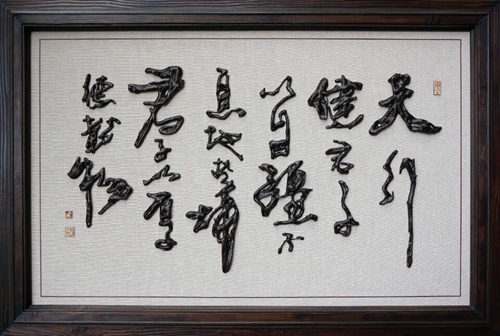 天行
健君子
以自强不
息地势坤
君子以厚
德载物